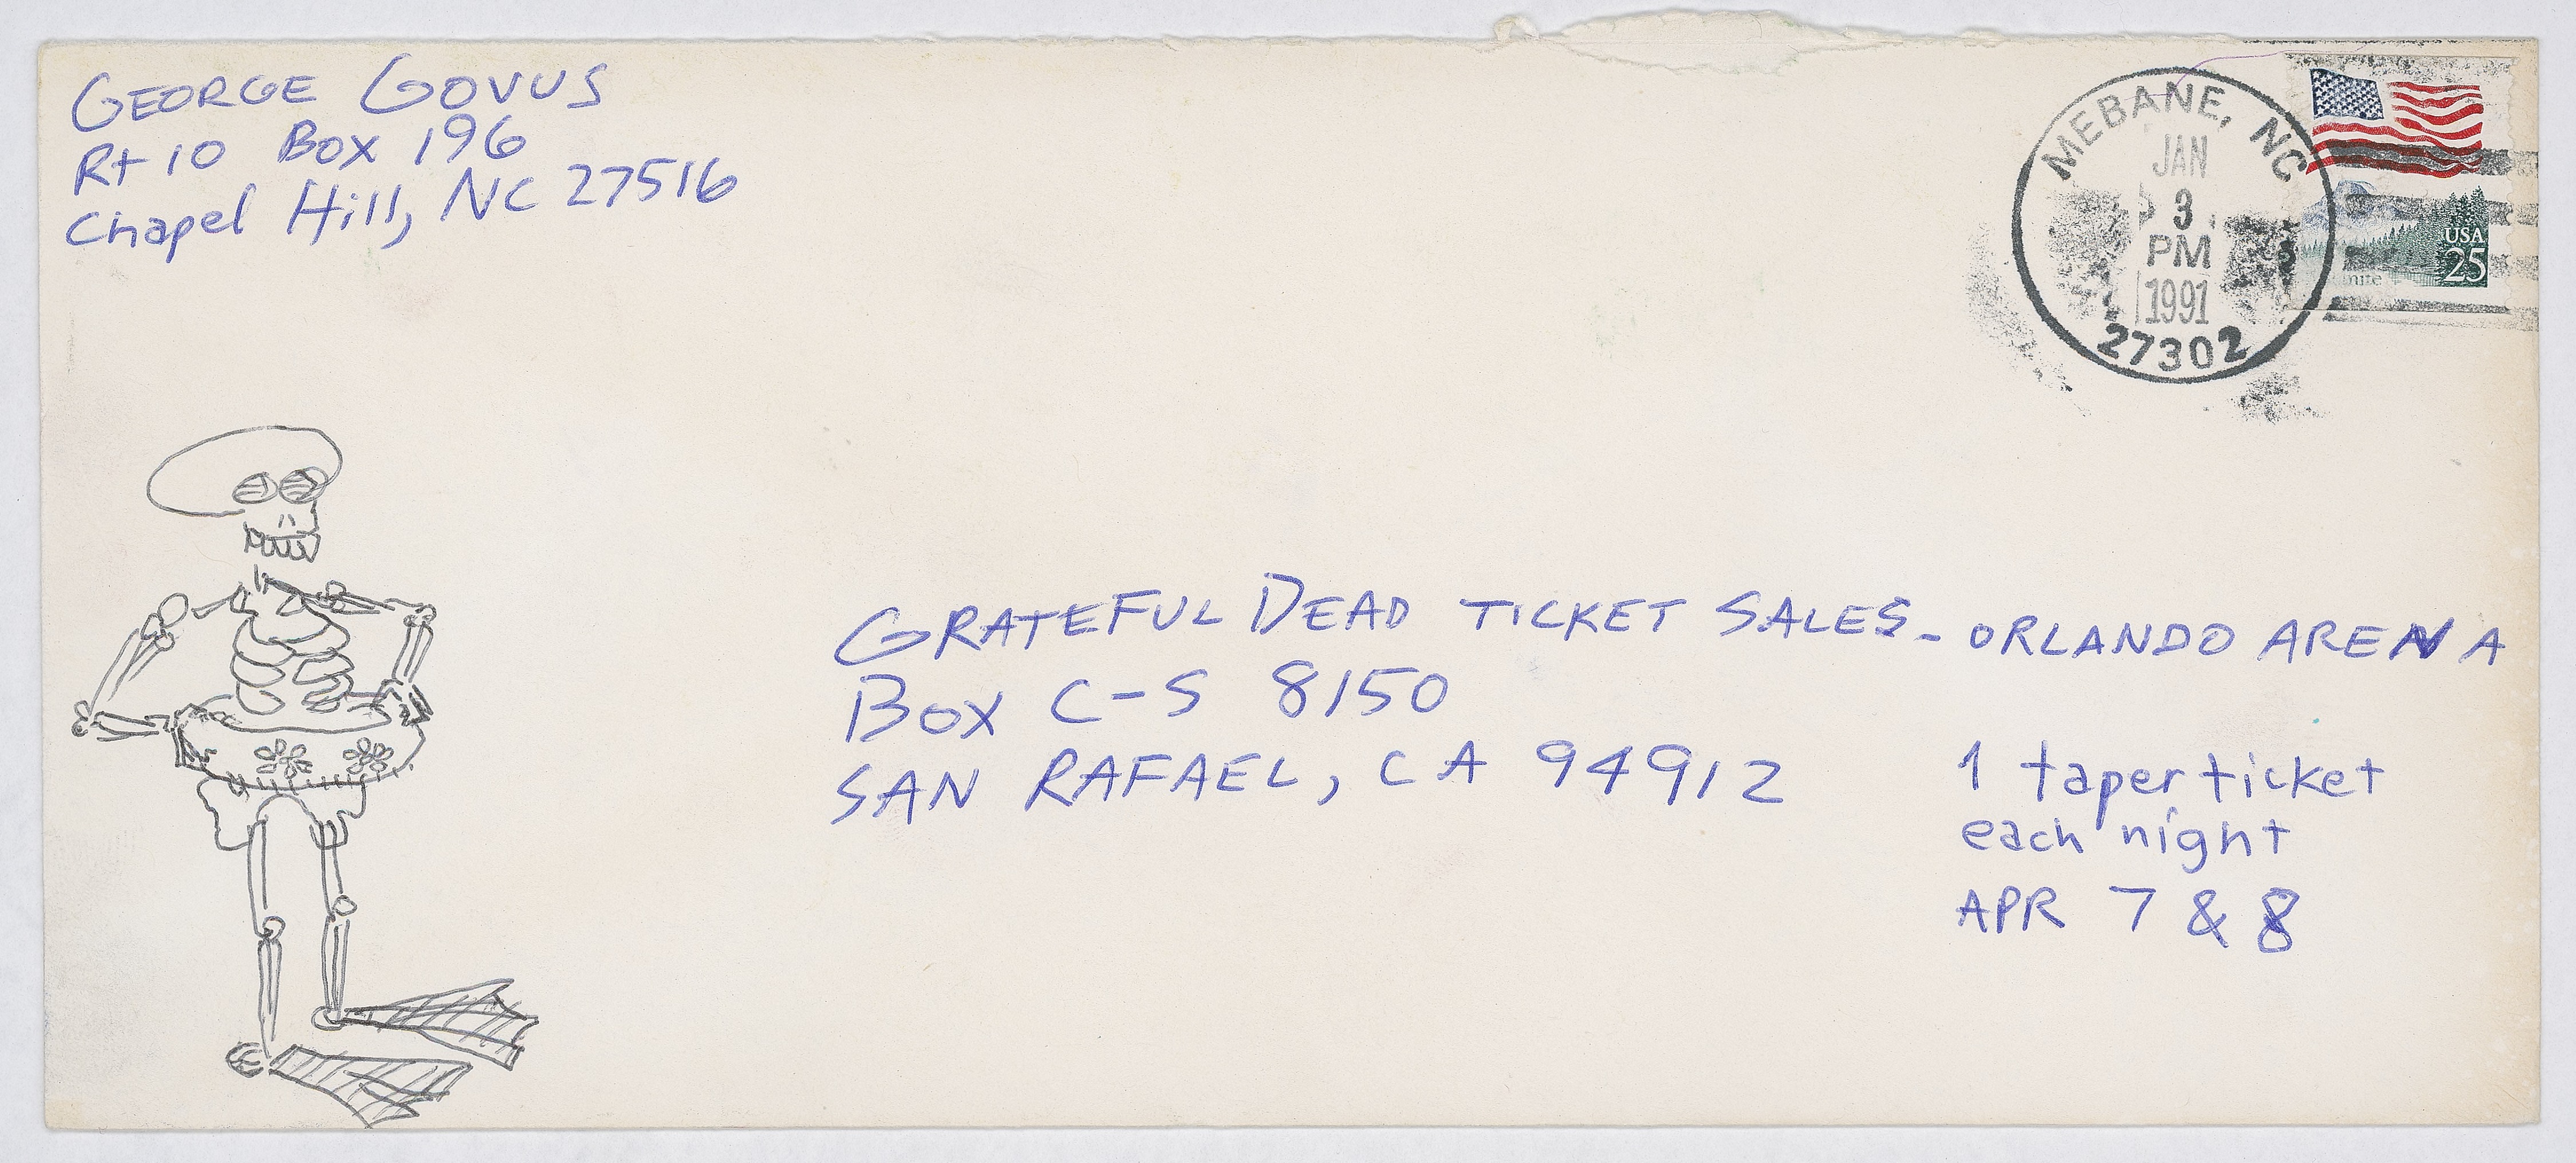 GEORGE GOVUS
Rt 10 Box 196
Chapel Hill, NC 27516
MEBANE, NC
JAN
3
PM
1991
27302
USA
25
GRATEFUL DEAD TICKET SALES - ORLANDO ARENA
BOX C-S 8150
SAN RAFAEL, CA 94912
1 taper ticket
each night
APR 7 & 8